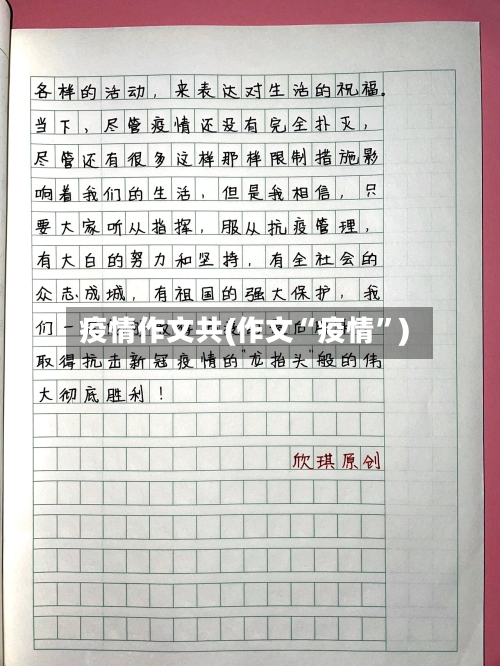 各样的活动，来表达对生活的祝福。
当下，尽管疫情还没有完全扑灭，
尽管还有很多这样那样限制措施影
响着我们的生活，但是我相信，只
要大家听从指挥，服从抗疫管理，
有大白的努力和坚持，有全社会的
众志成城，有祖国的强大保护，我
们一
疫情作文共(作文“疫情”)
取得抗击新冠疫情的"龙抬头"般的伟
大彻底胜利！
欣琪原创